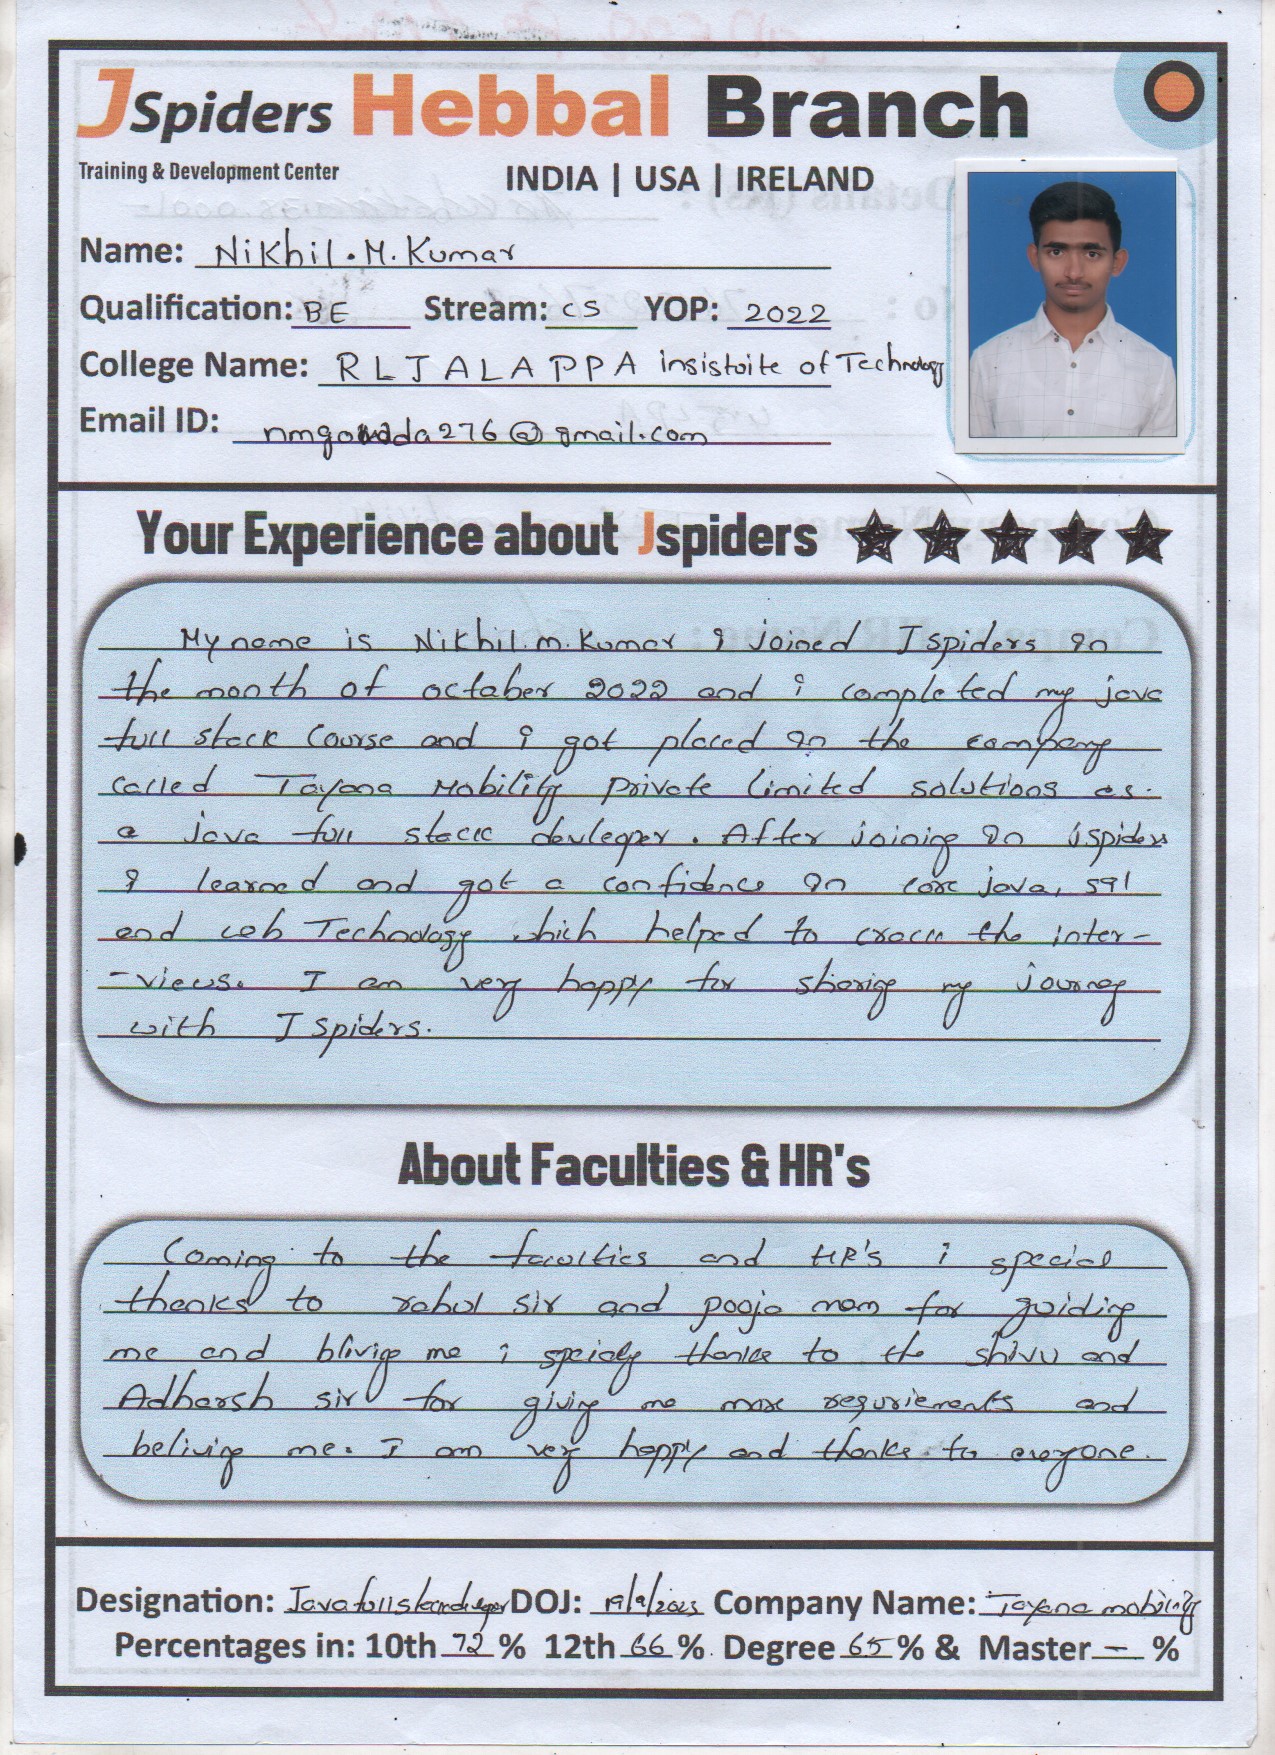 JSpiders Hebbal Branch
Training & Development Center
INDIA | USA | IRELAND
Name: Nikhil.M.Kumar
Qualification: BE Stream: CS YOP: 2022
College Name: RLJALAPPA insistuite of Technology
Email ID: nmgowda276@gmail.com
Your Experience about Jspiders
My name is Nikhil.m.kumar I joined Jspiders in
the month of octaber 2022 and i completed my java
full stack Course and i got placed in the company
called Tayana Mobility private limited solutions as.
a java full stack devleoper. After joining in Jspiders
I learned and got a confidence in core java, sql
and web Technology which helped to crack the inter-
-views. I am very happy for sharing my journey
with Jspiders.
About Faculties & HR's
Coming to the faculties and HR's i special
thanks to rahul sir and pooja mam for guiding
me and bliving me i specialy thanks to the shivu and
Adharsh sir for giving me more requriements and
beliving me. I am very happy and thanks to everyone.
Designation: Java full stack DOJ: 19/9/2023 Company Name: Tayana mobility
Percentages in: 10th 72 % 12th 66 % Degree 65 % & Master - %